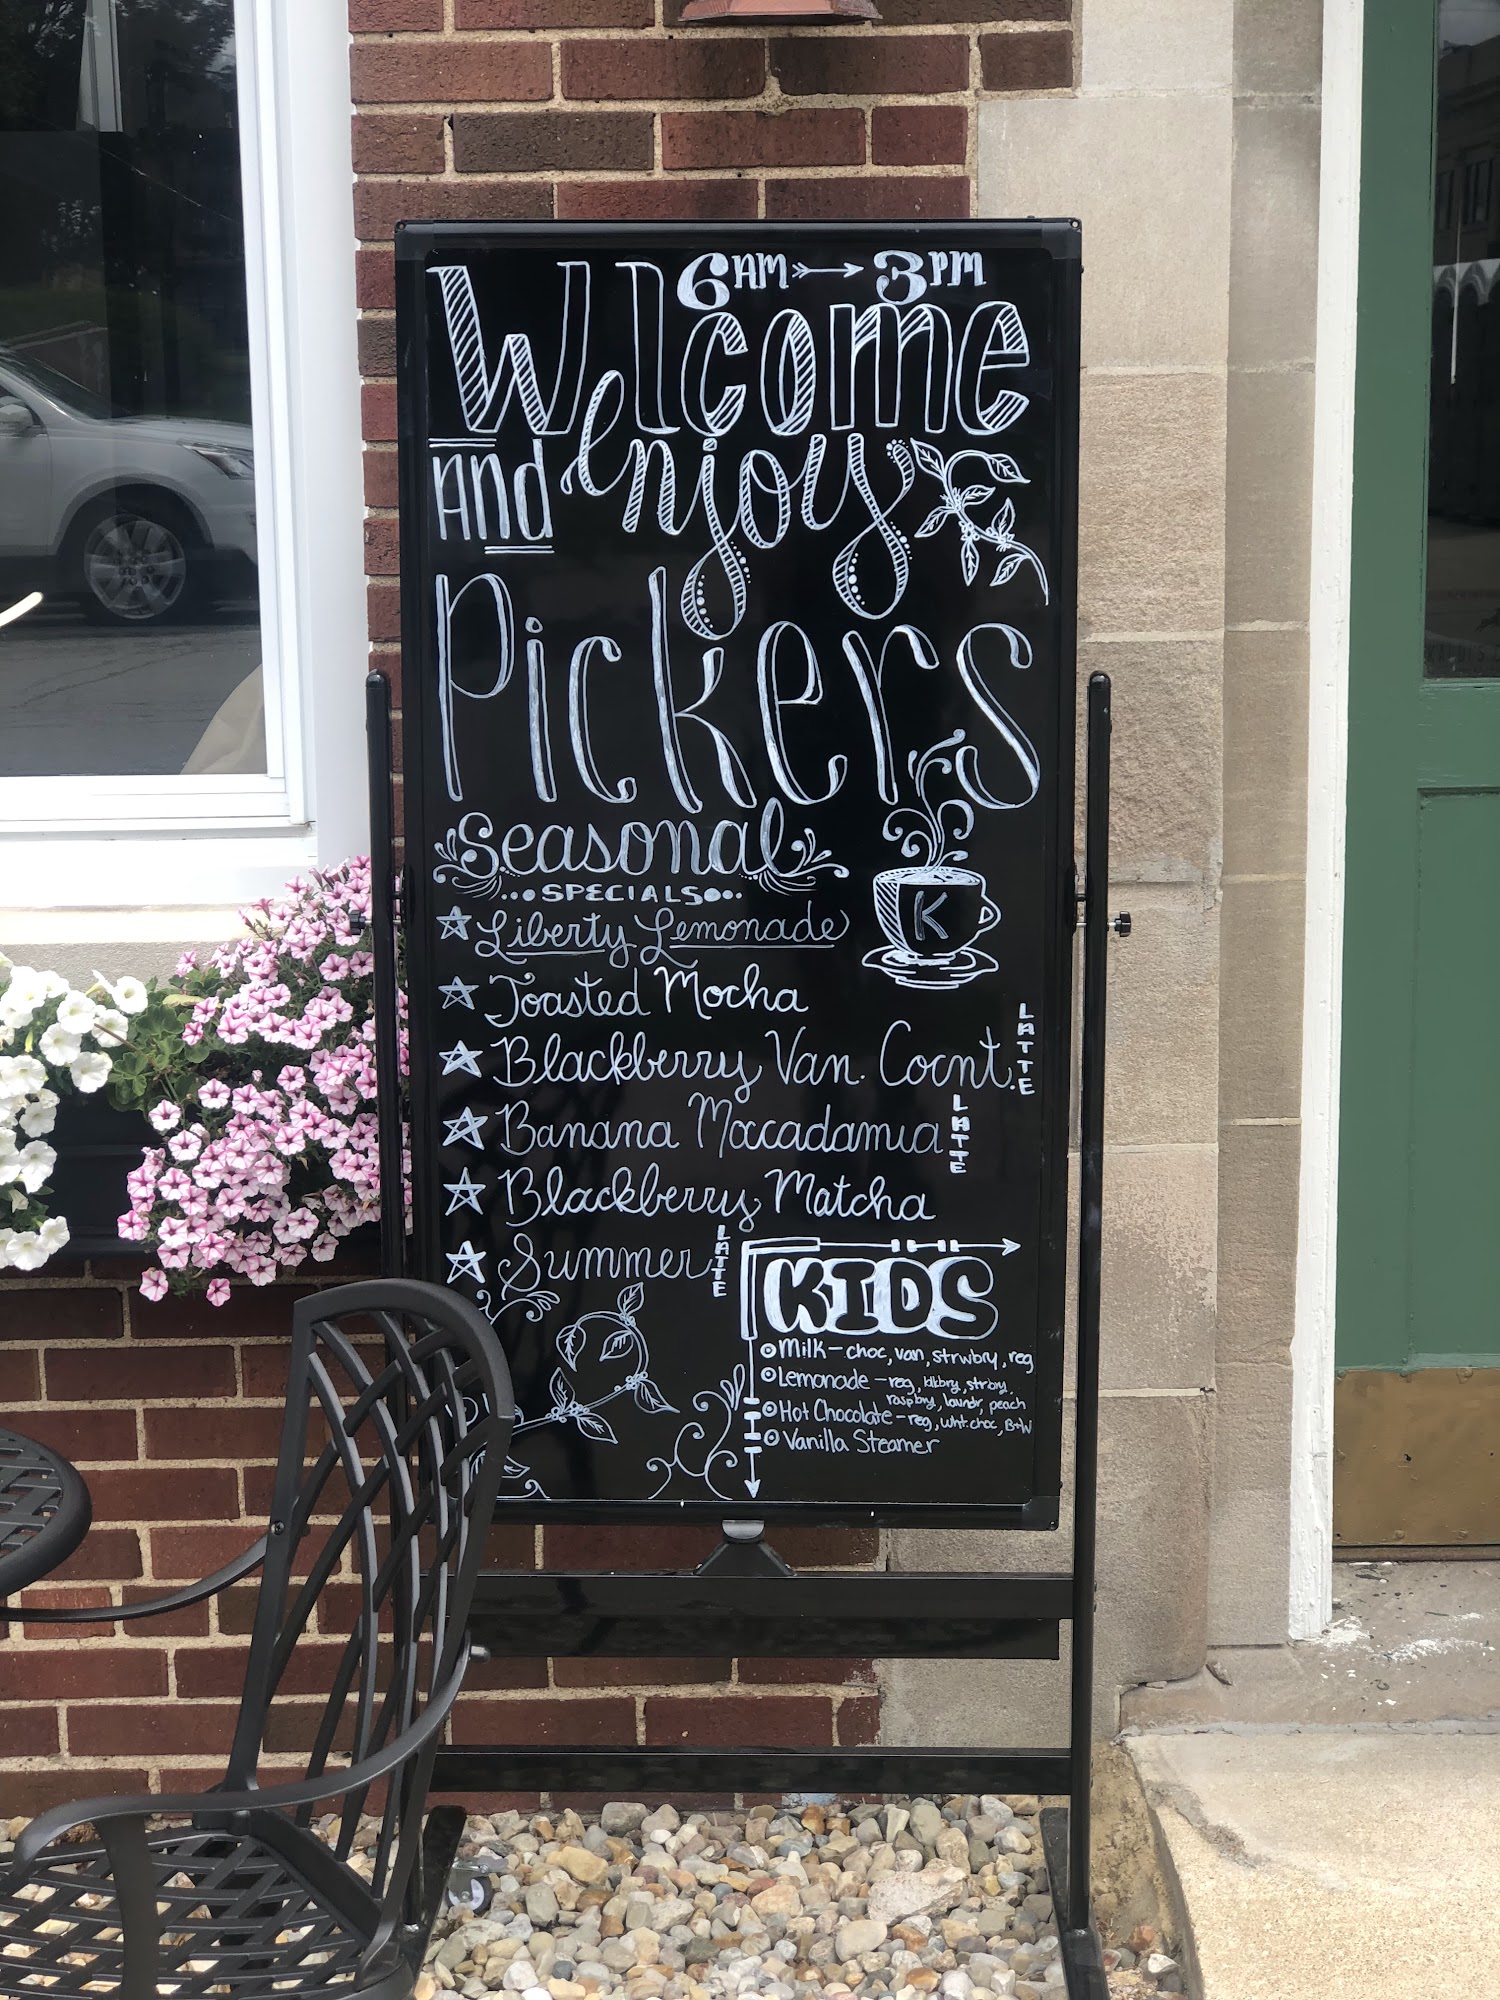 6AM 3PM
Welcome
AND enjoy
Pickers
Seasonal
SPECIALS
Liberty Lemonade
K
Toasted Mocha
Blackberry Van. Cocnt. LATTE
Banana Maccadamia LATTE
Blackberry Matcha
Summer LATTE
KIDS
Milk - choc, van, strwbry, reg
Lemonade - reg, blkbry, strbry,
raspbry, lavndr, peach
Hot Chocolate - reg, wht. choc, B+W
Vanilla Steamer